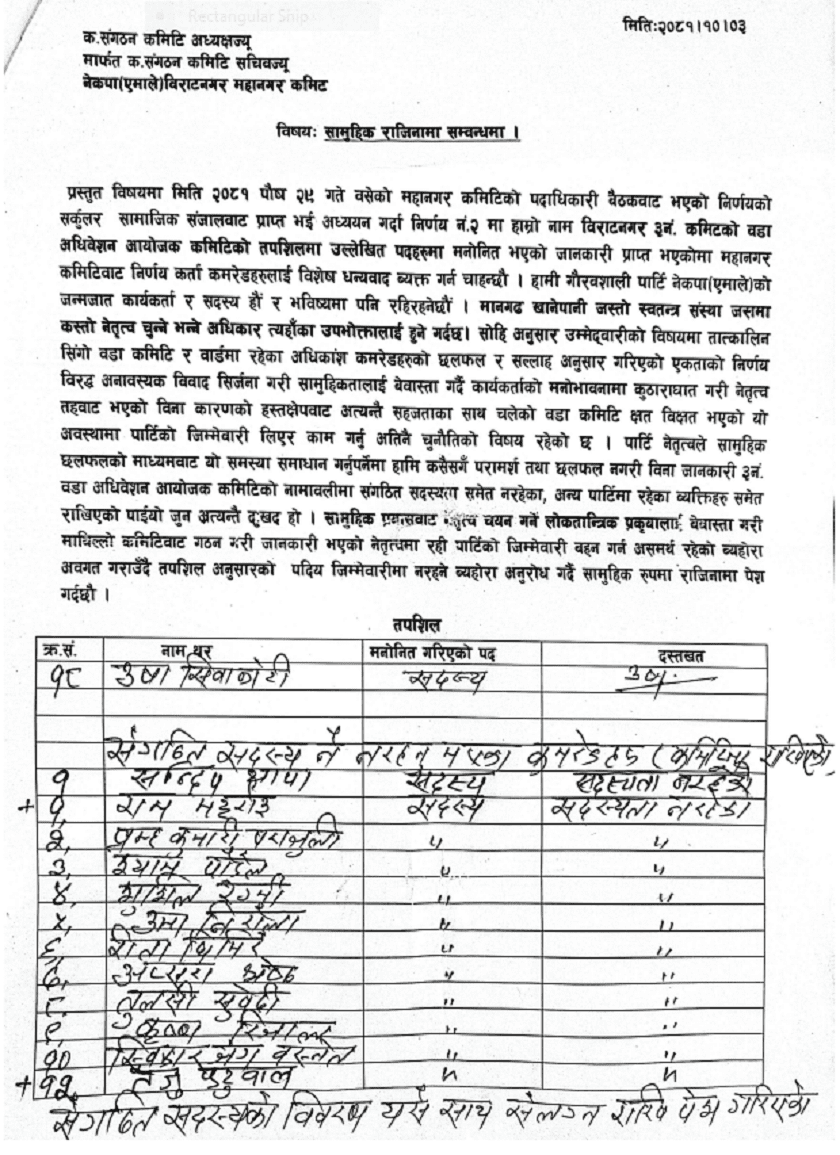 Rectangular Snip
मितिः२०८१।१०।०३
क.संगठन कमिटि अध्यक्षज्यू
मार्फत क.संगठन कमिटि सचिवज्यू
नेकपा(एमाले)विराटनगर महानगर कमिट
विषयः सामुहिक राजिनामा सम्वन्धमा ।
प्रस्तुत विषयमा मिति २०८१ पौष २९ गते वसेको महानगर कमिटिको पदाधिकारी वैठकवाट भएको निर्णयको
सर्कुलर सामाजिक संजालवाट प्राप्त भई अध्ययन गर्दा निर्णय नं.२ मा हाम्रो नाम विराटनगर ३नं. कमिटको वडा
अधिवेशन आयोजक कमिटिको तपशिलमा उल्लेखित पदहरुमा मनोनित भएको जानकारी प्राप्त भएकोमा महानगर
कमिटिवाट निर्णय कर्ता कमरेडहरुलाई विशेष धन्यवाद ब्यक्त गर्न चाहन्छौ । हामी गौरवशाली पार्टि नेकपा(एमाले)को
जन्मजात कार्यकर्ता र सदस्य हौं र भविष्यमा पनि रहिरहनेछौं । मानगढ खानेपानी जस्तो स्वतन्त्र संस्था जसमा
कस्तो नेतृत्व चुन्ने भन्ने अधिकार त्यहाँका उपभोक्तालाई हुने गर्दछ। सोहि अनुसार उम्मेद्वारीको विषयमा तात्कालिन
सिंगो वडा कमिटि र वार्डमा रहेका अधिकांश कमरेडहरुको छलफल र सल्लाह अनुसार गरिएको एकताको निर्णय
विरुद्ध अनावस्यक विवाद सिर्जना गरी सामुहिकतालाई वेवास्ता गर्दै कार्यकर्ताको मनोभावनामा कुठाराघात गरी नेतृत्व
तहवाट भएको विना कारणको हस्तक्षेपवाट अत्यन्तै सहजताका साथ चलेको वडा कमिटि क्षत विक्षत भएको यो
अवस्थामा पार्टिको जिम्मेवारी लिएर काम गर्नु अतिनै चुनौतिको विषय रहेको छ । पार्टि नेतृत्वले सामुहिक
छलफलको माध्यमवाट यो समस्या समाधान गर्नुपर्नेमा हामि कसैसगँ परामर्श तथा छलफल नगरी विना जानकारी ३नं.
वडा अधिवेशन आयोजक कमिटिको नामावलीमा संगठित सदस्यता समेत नरहेका, अन्य पार्टिमा रहेका ब्यक्तिहरु समेत
राखिएको पाईयो जुन अत्यन्तै दुःखद हो । सामुहिक नेतृत्व चयन गर्ने लोकतान्त्रिक प्रकृयालाई वेवास्ता गरी
माथिल्लो कमिटिवाट गठन गरी जानकारी भएको नेतृत्वमा रही पार्टिको जिम्मेवारी वहन गर्न असमर्थ रहेको ब्यहोरा
अवगत गराउँदै तपशिल अनुसारको पदिय जिम्मेवारीमा नरहने ब्यहोरा अनुरोध गर्दै सामुहिक रुपमा राजिनामा पेश
गर्दछौ ।
तपशिल
क्र.सं. नाम थर मनोनित गरिएको पद दस्तखत
१८ उषा सिवाकोटी सदस्य उषा
संगठित सदस्य नै नरहनु भएका कमरेडहरु
१ सन्दिप थापा सदस्य सदस्यता नरहेको
+ १, राम भट्टराई सदस्य सदस्यता नरहेको
२, कुमारी पराजुली " "
३, श्याम पौडेल " "
४, सुशिल " "
५, उमा निरौला " "
६, रिता घिमिरे " "
७, अप्सरा श्रेष्ठ " "
८, तुलसी सुवेदी " "
९, कृष्ण रिजाल " "
१० जंग वस्नेत " "
+ ११ " "
संगठित सदस्यको विवरण यसै साथ संलग्न राखि पेश गरिएको